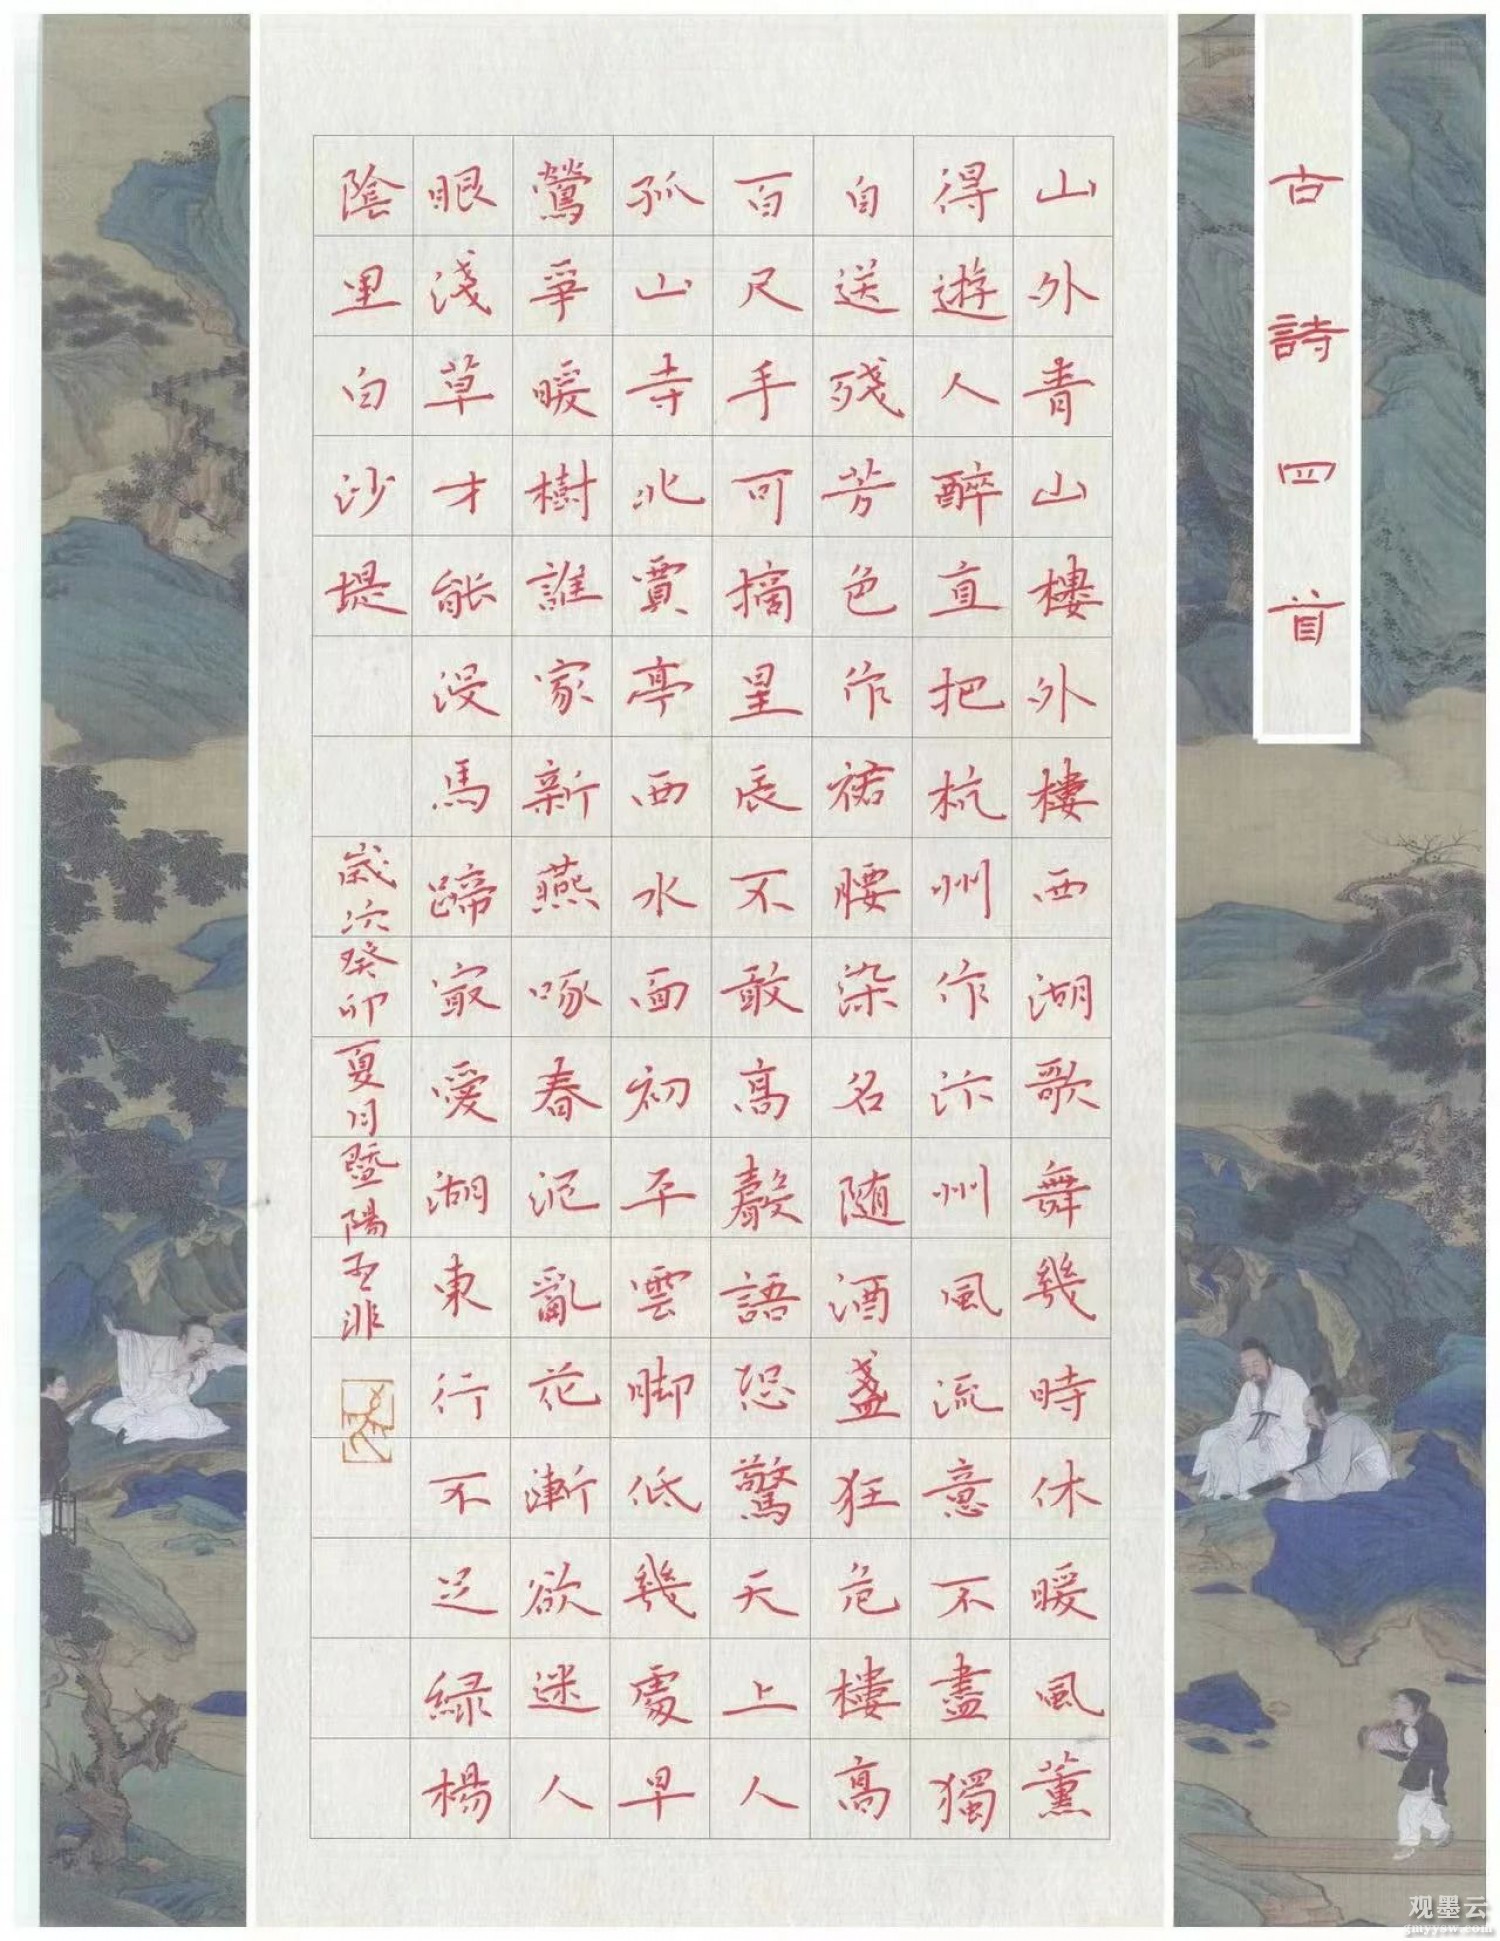 古詩四首
山外青山樓外樓西湖歌舞幾時休暖風薰
得遊人醉直把杭州作汴州風流意不盡獨
自送殘芳色作裙腰染名随酒盞狂危樓高
百尺手可摘星辰不敢高聲語恐驚天上人
孤山寺北賈亭西水面初平雲脚低幾處早
鶯爭暖樹誰家新燕啄春泥亂花漸欲迷人
眼淺草才能沒馬蹄最愛湖東行不足緑楊
陰里白沙堤
歲次癸卯夏月暨陽
观墨云
gmyysw.com